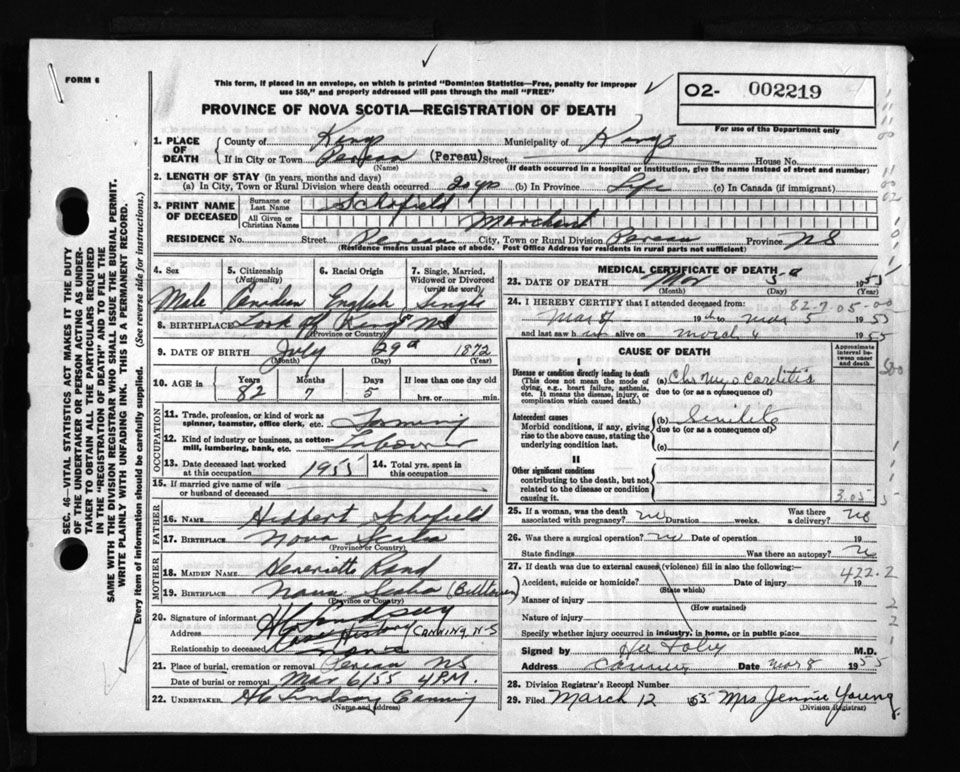 FORM 6
This form, if placed in an envelope, on which is printed "Dominion Statistics—Free, penalty for improper
use $50," and properly addressed will pass through the mail "FREE"
PROVINCE OF NOVA SCOTIA—REGISTRATION OF DEATH
02- 002219
For use of the Department only
SEC. 46- VITAL STATISTICS ACT MAKES IT THE DUTY
OF THE UNDERTAKER OR PERSON ACTING AS UNDER-
TAKER TO OBTAIN ALL THE PARTICULARS REQUIRED
IN THE "REGISTRATION OF DEATH" AND TO FILE THE
SAME WITH THE DIVISION REGISTRAR WHO SHALL ISSUE THE BURIAL PERMIT.
WRITE PLAINLY WITH UNFADING INK. THIS IS A PERMANENT RECORD.
Every item of information should be carefully supplied. (See reverse side for instructions.)
1. PLACE OF DEATH
County of Kings Municipality of Kings
If in City or Town Pereau (Pereau) Street House No.
(Name) (If death occurred in a hospital or institution, give the name instead of street and number)
2. LENGTH OF STAY (in years, months and days)
(a) In City, Town or Rural Division where death occurred 20 yrs (b) In Province Life (c) In Canada (if immigrant)
3. PRINT NAME OF DECEASED
Surname or Last Name Schofield
All Given or Christian Names
RESIDENCE No. Street Pereau City, Town or Rural Division Pereau Province NS
(Residence means usual place of abode. Post Office Address for residents in rural parts not sufficient)
4. Sex 5. Citizenship (Nationality) 6. Racial Origin 7. Single, Married, Widowed or Divorced (write the word)
Male Canadian English Single
8. BIRTHPLACE Look Off Kings NS
(Province or Country)
9. DATE OF BIRTH July 29 1872
(Month) (Day) (Year)
10. AGE in Years Months Days If less than one day old
82 7 5 hrs. or min.
OCCUPATION
11. Trade, profession, or kind of work as
spinner, teamster, office clerk, etc. Farming
12. Kind of industry or business, as cotton-
mill, lumbering, bank, etc. Labourer
13. Date deceased last worked
at this occupation 1955 14. Total yrs. spent in
this occupation
15. If married give name of wife
or husband of deceased
FATHER
16. NAME Hibbert Schofield
17. BIRTHPLACE Nova Scotia
(Province or Country)
MOTHER
18. MAIDEN NAME Heneriette Rand
19. BIRTHPLACE Nova Scotia
(Province or Country)
20. Signature of informant H C Lindsay
Address Case History CANNING N-S
Relationship to deceased None
21. Place of burial, cremation or removal Pereau NS
Date of burial or removal Mar 6/55 4 P.M.
22. UNDERTAKER H C Lindsay Canning
(Name and address)
MEDICAL CERTIFICATE OF DEATH
23. DATE OF DEATH Mar 5 1955
(Month) (Day)
24. I HEREBY CERTIFY that I attended deceased from: 82-7-05-00
to Mar 5 1955
and last saw him alive on March 4 1955
CAUSE OF DEATH
Approximate interval between onset and death
I
Disease or condition directly leading to death
(This does not mean the mode of
dying, e.g., heart failure, asthenia,
etc. It means the disease, injury, or
complication which caused death.)
(a) Chr Myocarditis
due to (or as a consequence of)
Antecedent causes
Morbid conditions, if any, giving
rise to the above cause, stating the
underlying condition last.
(b) Senility
due to (or as a consequence of)
(c)
II
Other significant conditions
contributing to the death, but not
related to the disease or condition
causing it.
3.05
25. If a woman, was the death
associated with pregnancy? no Duration weeks. Was there
a delivery? no
26. Was there a surgical operation? no Date of operation 19
State findings Was there an autopsy? no
27. If death was due to external causes (violence) fill in also the following: 422.2
Accident, suicide or homicide? Date of injury 19
(State which)
Manner of injury
(How sustained)
Nature of injury
Specify whether injury occurred in industry, in home, or in public place
Signed by M.D.
Address Canning Date Mar 8 1955
28. Division Registrar's Record Number
29. Filed March 12 55 Mrs Jennie Young
(Division Registrar)